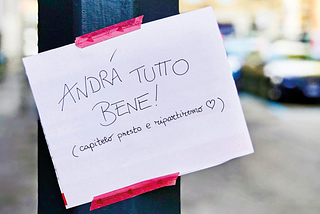 ANDRÁ TUTTO
BENE!
(capitelo presto e ripartiremo ♡)